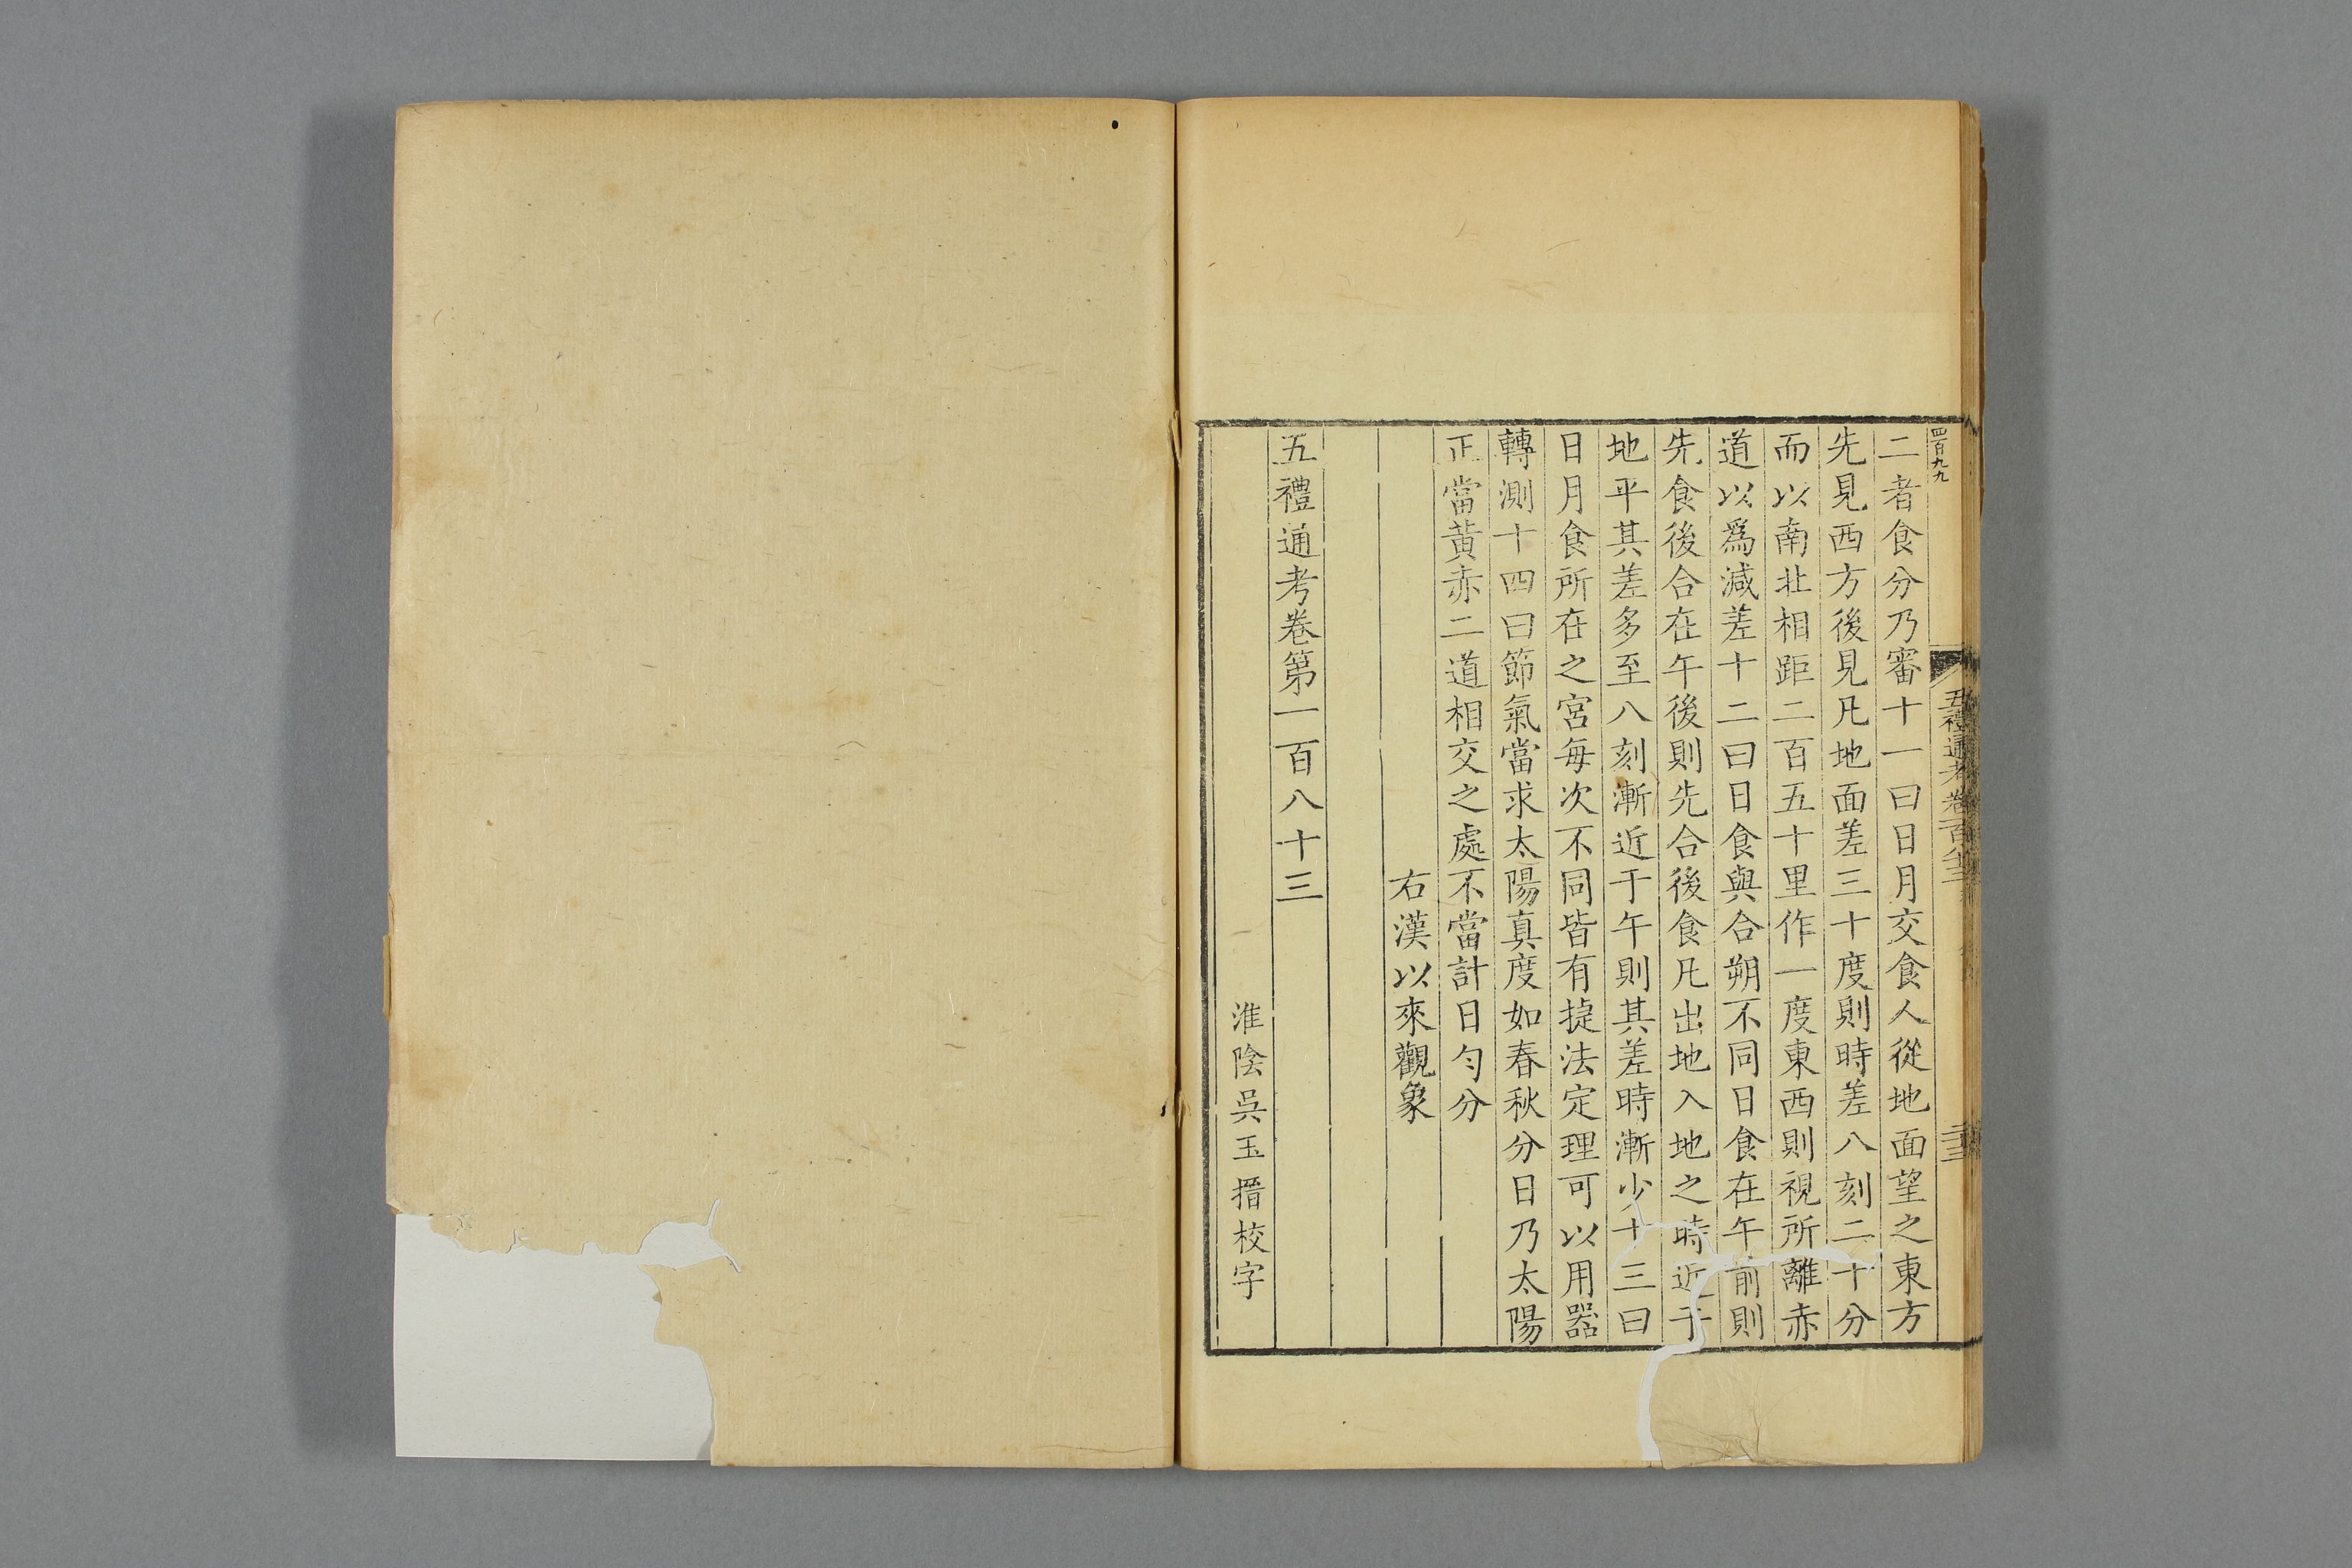 四百九九
五禮通考卷一百八十三
二者食分乃審十一曰日月交食人從地面望之東方
先見西方後見凡地面差三十度則時差八刻二十分
而以南北相距二百五十里作一度東西則視所離赤
道以爲減差十二曰日食與合朔不同日食在午前則
先食後合在午後則先合後食凡出地入地之時近于
地平其差多至八刻漸近于午則其差時漸少十三曰
日月食所在之宮每次不同皆有捷法定理可以用器
轉測十四曰節氣當求太陽真度如春秋分日乃太陽
正當黃赤二道相交之處不當計日勻分
右漢以來觀象
五禮通考卷第一百八十三
淮陰吳玉搢校字